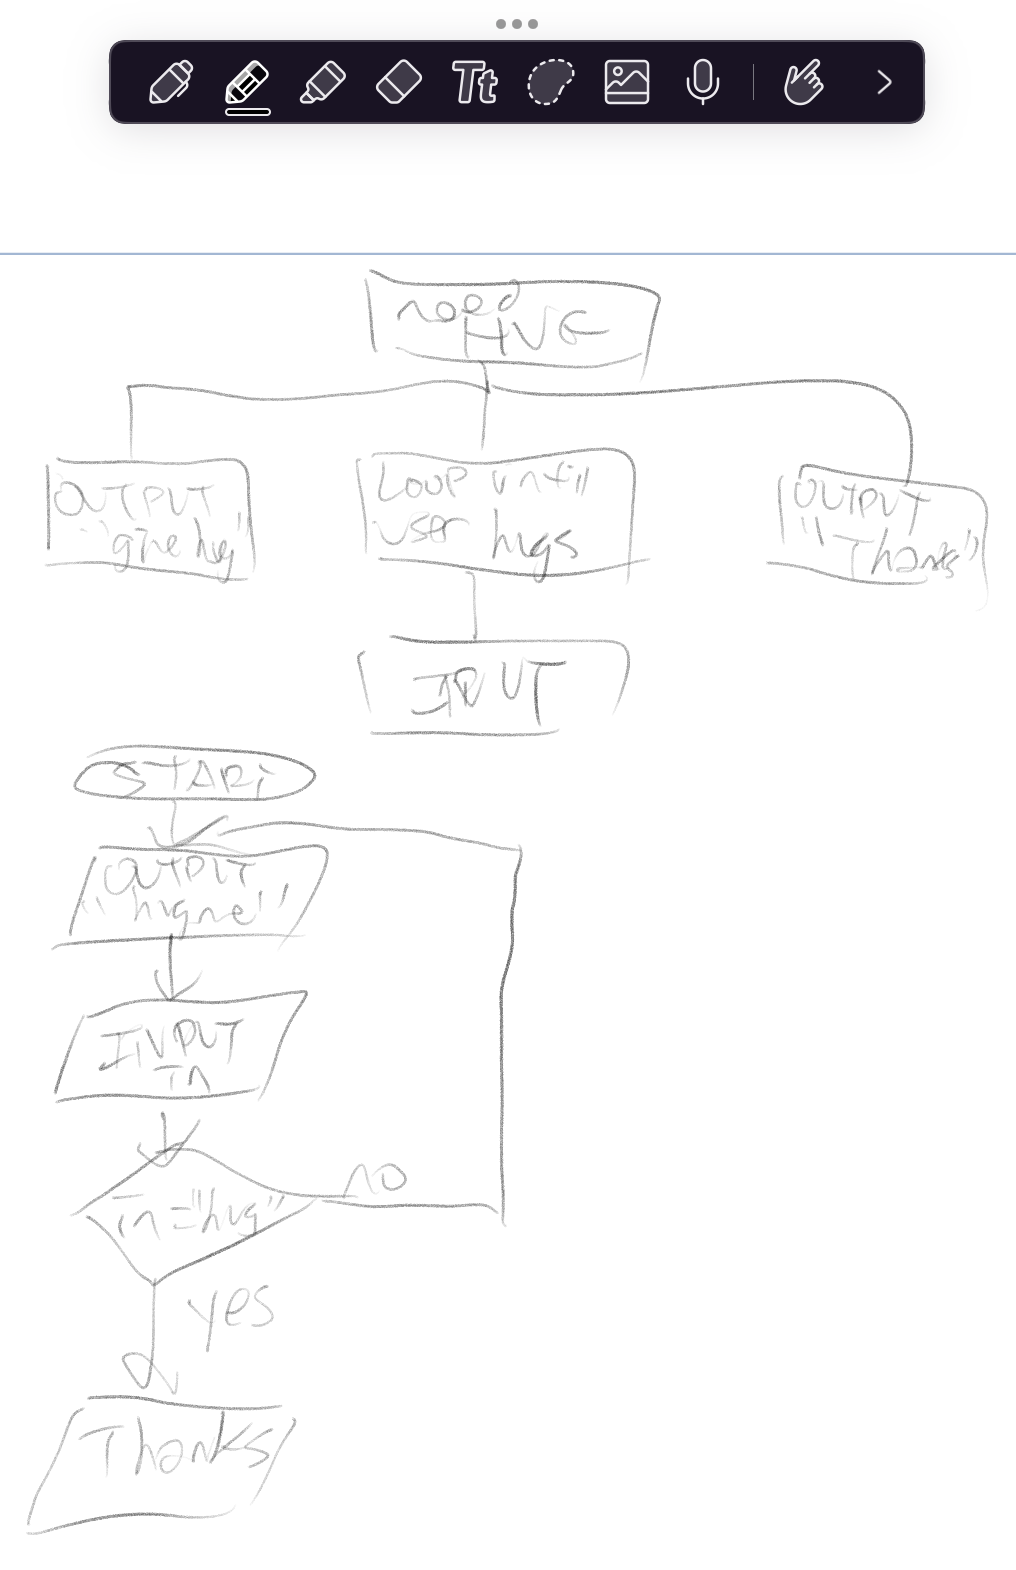 Tt
need
HUG
OUTPUT
"give hug"
Loop until
user hugs
OUTPUT
"Thanks"
INPUT
START
OUTPUT
"hug me"
INPUT
in
in="hug"
no
yes
Thanks